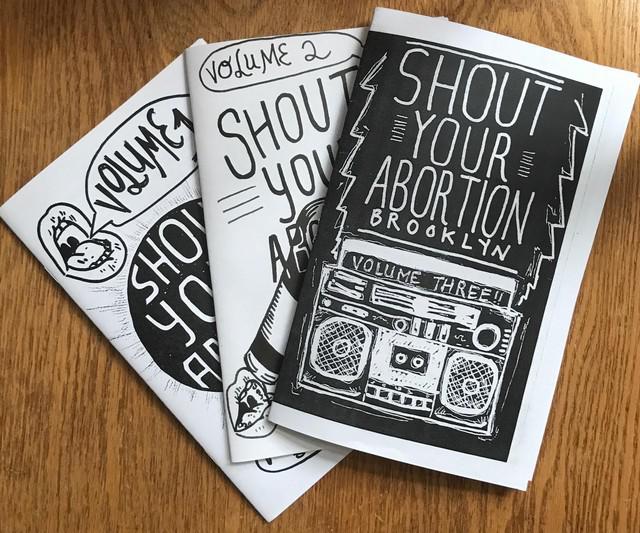 VOLUME 1
SHOU
YO
VOLUME 2
SHOUT
YOU
ABO
SHOUT
YOUR
ABORTION
BROOKLYN
VOLUME THREE!!